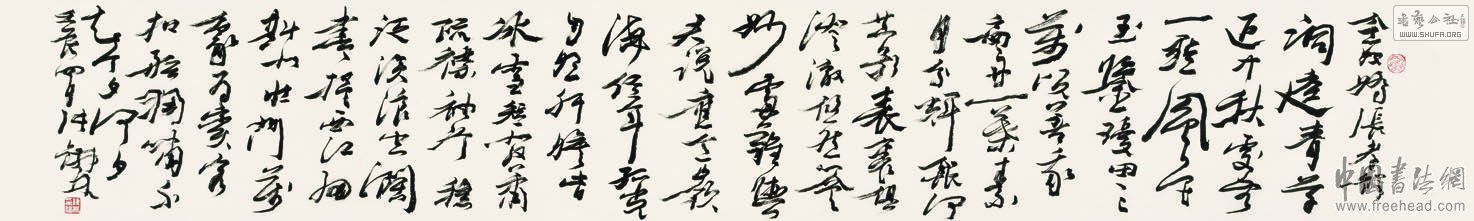 念奴娇 张孝祥
洞庭青草
近中秋更无
一点风色
玉鉴琼田三
万顷著我
扁舟一叶素
月分辉银河
共影表里俱
澄澈悠然心会
妙处难与
君说应念岭
海经年孤光
自照肝胆皆
冰雪短发萧
疏襟袖冷稳
泛沧浪空阔
尽挹西江细
斟北斗万
象为宾客
扣舷独啸不
知今夕何夕
壬辰四月
书艺公社
WWW.SHUFA.ORG
中国书法網
www.freehead.com